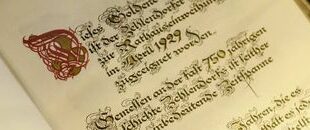 Dieses Goldene
ist der Zehlendorfer
zur Rathauseinweihung
im April 1929
zugeeignet worden.
Gemessen an der fast 750 jährigen
Geschichte Zehlendorfs ist seither
unbedeutende Zeitspanne
Jahren, die es